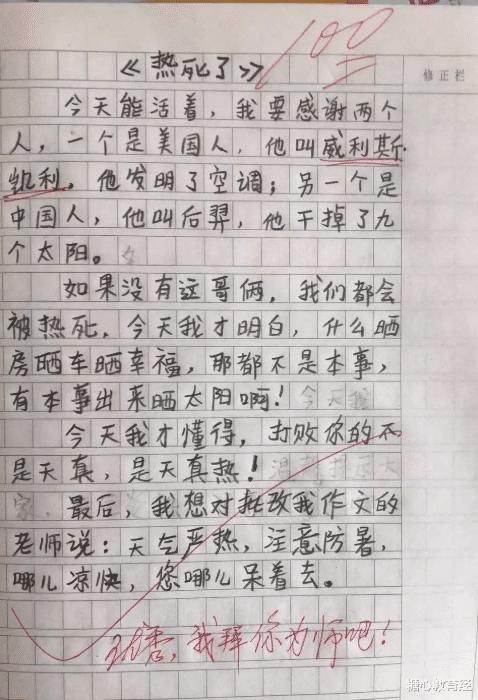 100
《热死了》
修正栏
今天能活着，我要感谢两个
人，一个是美国人，他叫威利斯·
凯利，他发明了空调；另一个是
中国人，他叫后羿，他干掉了九
个太阳。
如果没有这哥俩，我们都会
被热死，今天我才明白，什么晒
房晒车晒幸福，那都不是本事，
有本事出来晒太阳啊！
今天我才懂得，打败你的不
是天真，是天真热！
最后，我想对批改我作文的
老师说：天气严热，注意防暑，
哪儿凉快，您哪儿呆着去。
我拜你为师吧！
糖心教育经